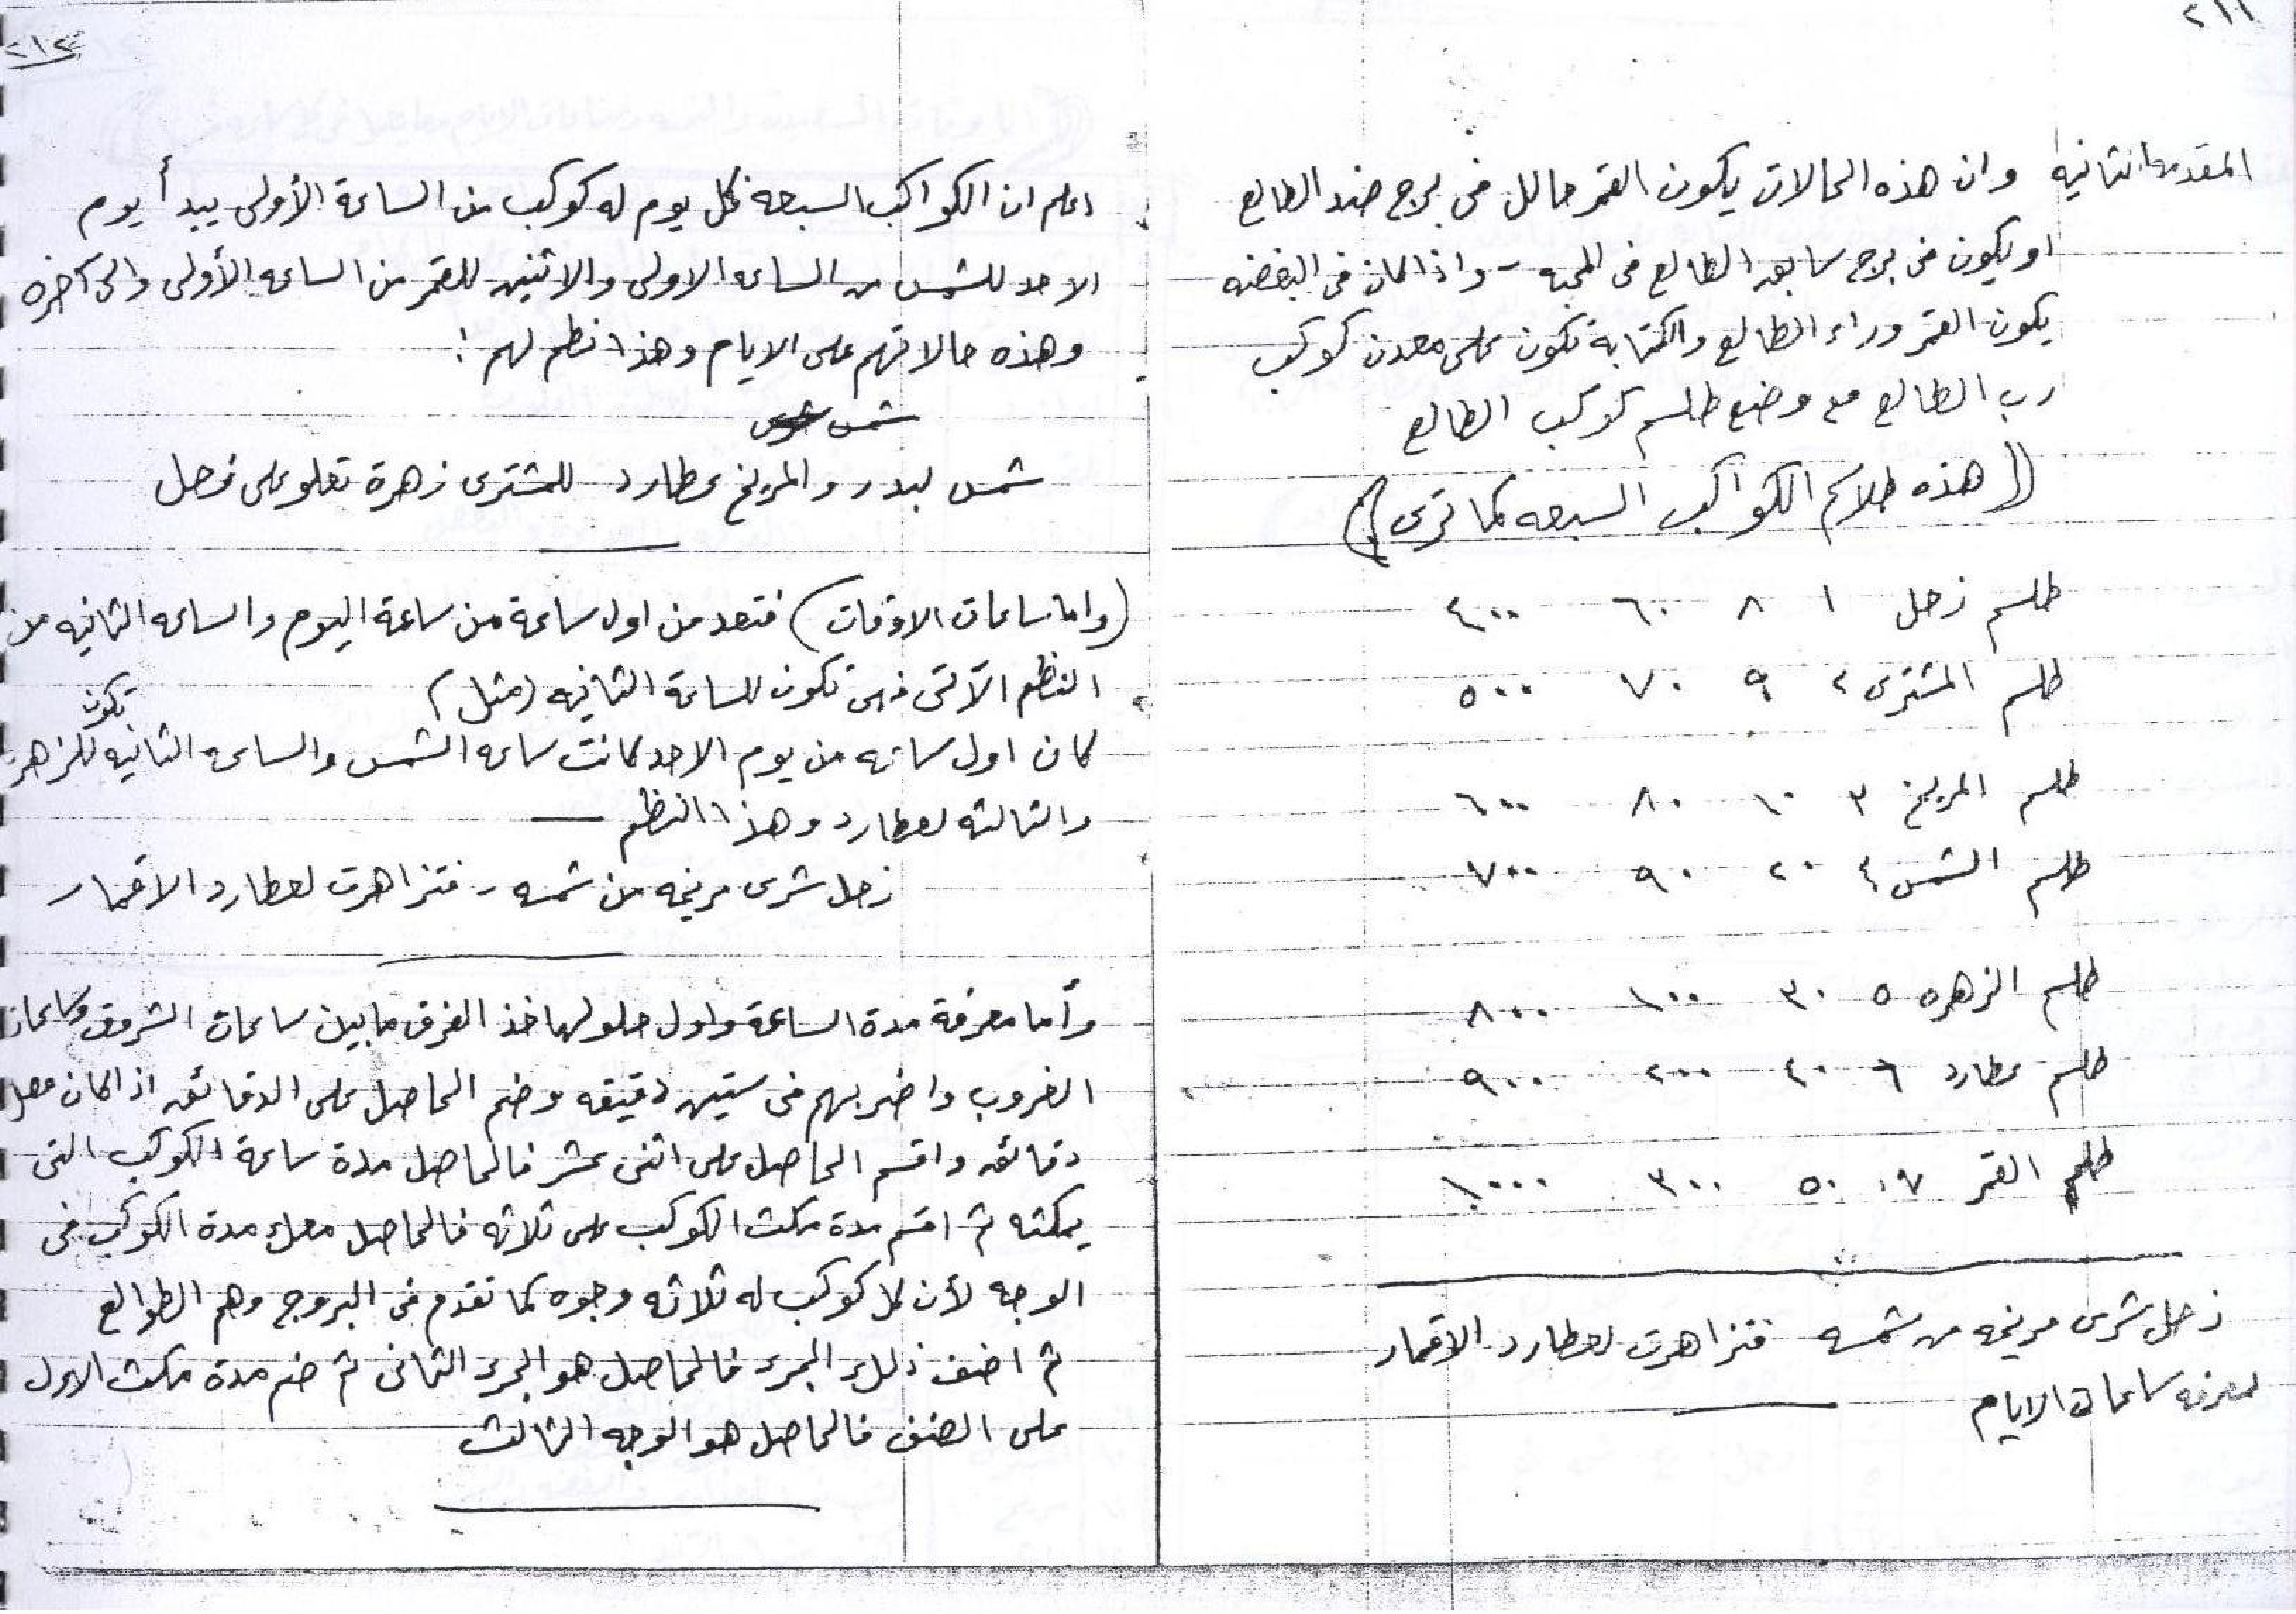 ٢١١
المقدمه الثانيه وان هذه الحالات يكون القمر حالل فى برج ضد الطالع
او يكون فى برج سابعه الطالع فى المحبه - واذا كان فى البغضه
يكون القمر وراء الطالع والكتابة تكون على معدن كوكب
رب الطالع مع وضع طلسم كوكب الطالع
(( هذه طلاسم الكواكب السبعه كما ترى ))
طلسم زحل ١ ٨ ٦٠ ٤٠٠
طلسم المشترى ٢ ٩ ٧٠ ٥٠٠
طلسم المريخ ٣ ١٠ ٨٠ ٦٠٠
طلسم الشمس ٤ ٢٠ ٩٠ ٧٠٠
طلسم الزهره ٥ ٣٠ ١٠٠ ٨٠٠
طلسم عطارد ٦ ٤٠ ٢٠٠ ٩٠٠
طلسم القمر ٧ ٥٠ ٣٠٠ ١٠٠٠
زحل شرى مريخه من شمسه فتزاهرت لعطارد الاقمار
لمعرفه ساعات الايام
٢١٢
اعلم ان الكواكب السبعه لكل يوم له كوكب من الساعة الأولى يبدأ يوم
الاحد للشمس من الساعه الاولى والاثنين للقمر من الساعه الأولى والى آخره
وهذه حالاتهم على الايام وهذا نظم لهم :
شمس
شمس لبدر والمريخ عطارد للمشترى زهرة تعلو على زحل
(واما ساعات الاوقات) فتعد من اول ساعة من ساعة اليوم والساعه الثانيه من
النظم الآتى فهى تكون للساعة الثانيه (مثل)
كان اول ساعه من يوم الاحد كانت ساعه الشمس والساعه الثانيه تكون للزهره
والثالثه لعطارد وهذا النظم
زحل شرى مريخه من شمسه - فتزاهرت لعطارد الاقمار
وأما معرفة مدة الساعة واول حلولها خذ الفرق ما بين ساعات الشروق وساعات
الغروب واضربهم فى ستين دقيقه وضم الحاصل على الدقائق اذا كان معك
دقائق واقسم الحاصل على اثنى عشر فالحاصل مدة ساعة الكوكب التى
يمكثه ثم اقسم مدة مكث الكوكب على ثلاثه فالحاصل معك مدة الكوكب فى
الوجه لأن كل كوكب له ثلاثه وجوه كما تقدم فى البروج وهم الطوالع
ثم اضف ذلك الجزء فالحاصل هو الجزء الثانى ثم ضم مدة مكث الاول
على الضف فالحاصل هو الوجه الثالث